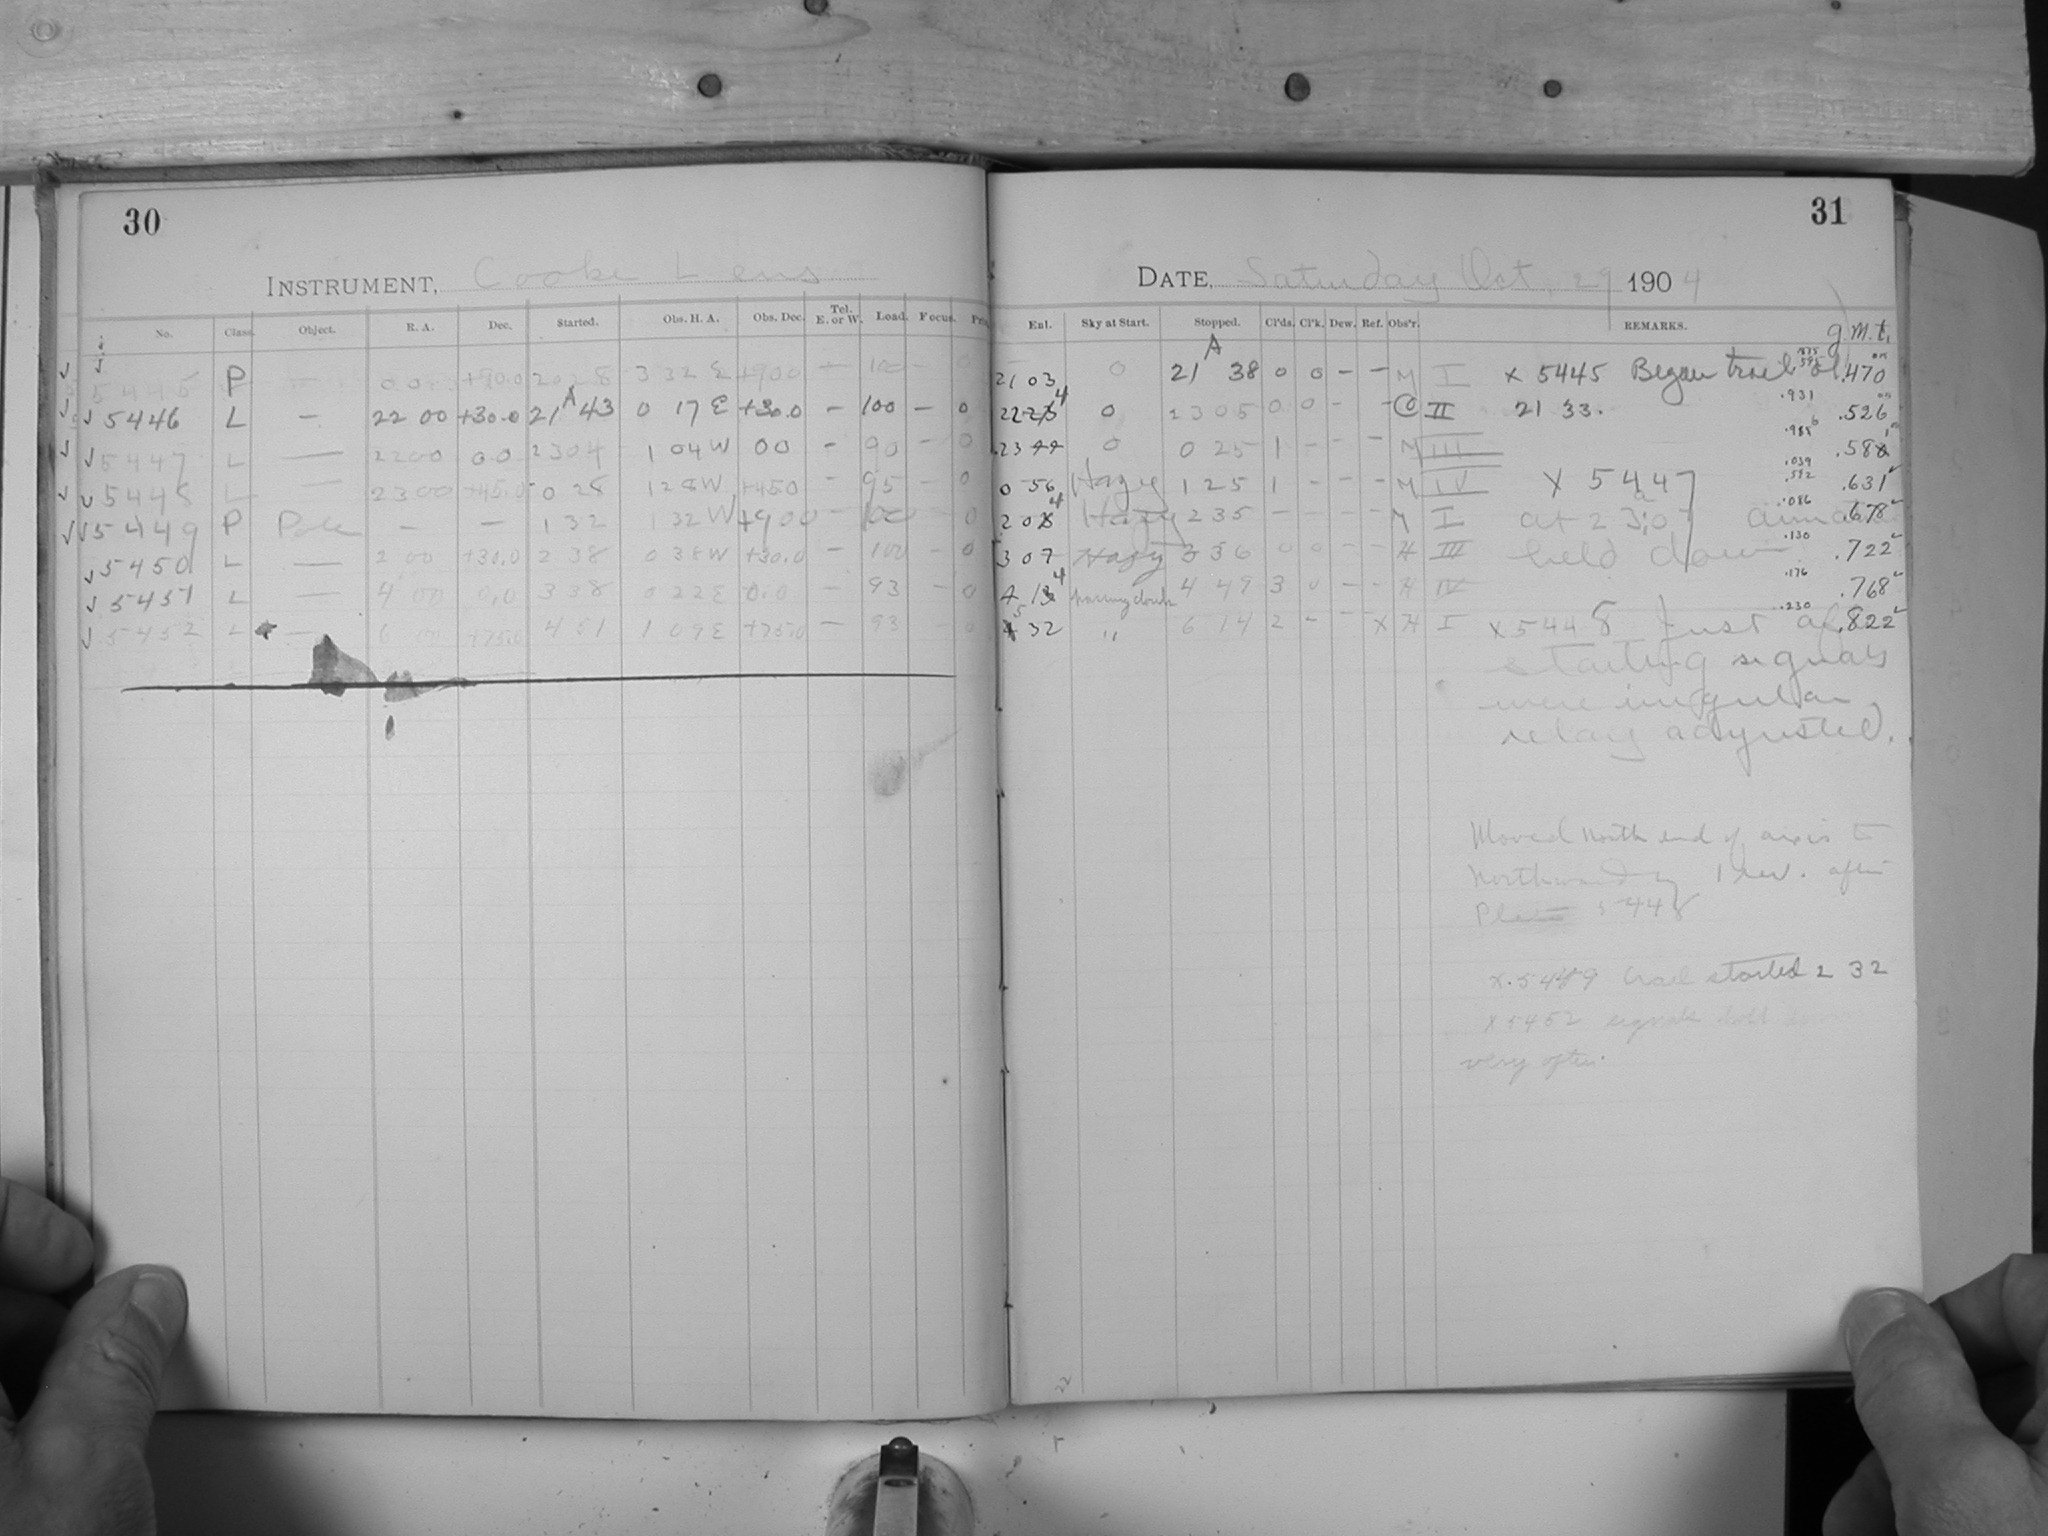 30
INSTRUMENT, Cooke Lens
No. Class. Object. R. A. Dec. Started. Obs. H. A. Obs. Dec. Tel. E. or W. Load. Focus.
5445 P — 0 0 +90.0 20 28 3 32 E +90.0 — 100 0
5446 L — 22 00 +30.0 21 A 43 0 17 E +30.0 — 100 — 0
5447 L — 22 00 0.0 23 04 1 04 W 0 0 - 90 - 0
5448 L — 23 00 +45.0 0 28 1 28 W +45.0 - 95 - 0
5449 P Pole — — 1 32 1 32 W +90.0 - 100 - 0
5450 L — 2 00 +30.0 2 38 0 38 W +30.0 - 100 - 0
5451 L — 4 00 0.0 3 38 0 22 E 0.0 - 93 - 0
5452 L — 6 00 +75.0 4 51 1 09 E +75.0 — 93
31
DATE, Saturday Oct. 29 1904
Enl. Sky at Start. Stopped. Cl'ds. Cl'k. Dew. Ref. Obs'r. REMARKS. G.M.T.
21 03 0 21 A 38 0 0 - - M I x 5445 Began trail at .470
22 24 0 23 05 0 0 - - II 21 33. .931 .526
23 44 0 0 25 1 - - - M III .985 .58
0 56 Hazy 1 25 1 - - - M IV X 5447 .039 .592 .631
2 04 Hazy 2 35 - - - M I at 23:07 .086 .678
3 07 Hazy 3 36 0 0 - - H III held down .130 .722
4 14 passing clouds 4 49 3 0 - - H IV .176 .768
5 32 " 6 14 2 - - X H I x 5448 Just .230 .822
starting signals
were irregular
relay adjusted.
Moved north end of axis to
Northward 1 rev. after
Plate 5448
x.5449 trail started 2 32
x 5452 signals held down
very often.